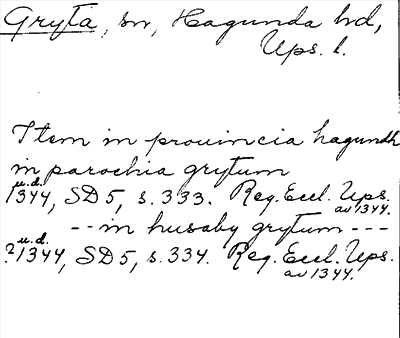 Gryta, sn, Hagunda hd,
Ups. l.
Item in prouincia hagundh
in parochia grytum
u.d.
1344, SD 5, s. 333. Reg. Eccl. Ups.
av 1344.
-- in husaby grytum ---
u.d.
?1344, SD 5, s. 334. Reg. Eccl. Ups.
av 1344.